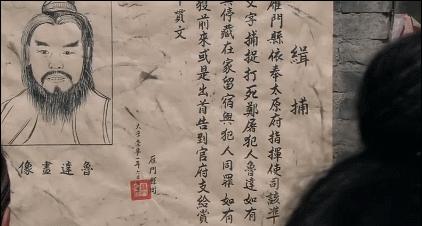 緝捕
雁門縣依奉太原府指揮使司該準
文字捕捉打死鄭屠犯人魯達如有
其停藏在家留宿與犯人同罪如有
獲前來或是出首告到官府支給賞
貫文
雁門縣
魯達畫像